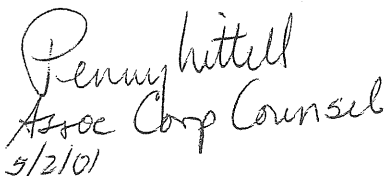 Penny Littell
Assoc Corp Counsel
5/2/01